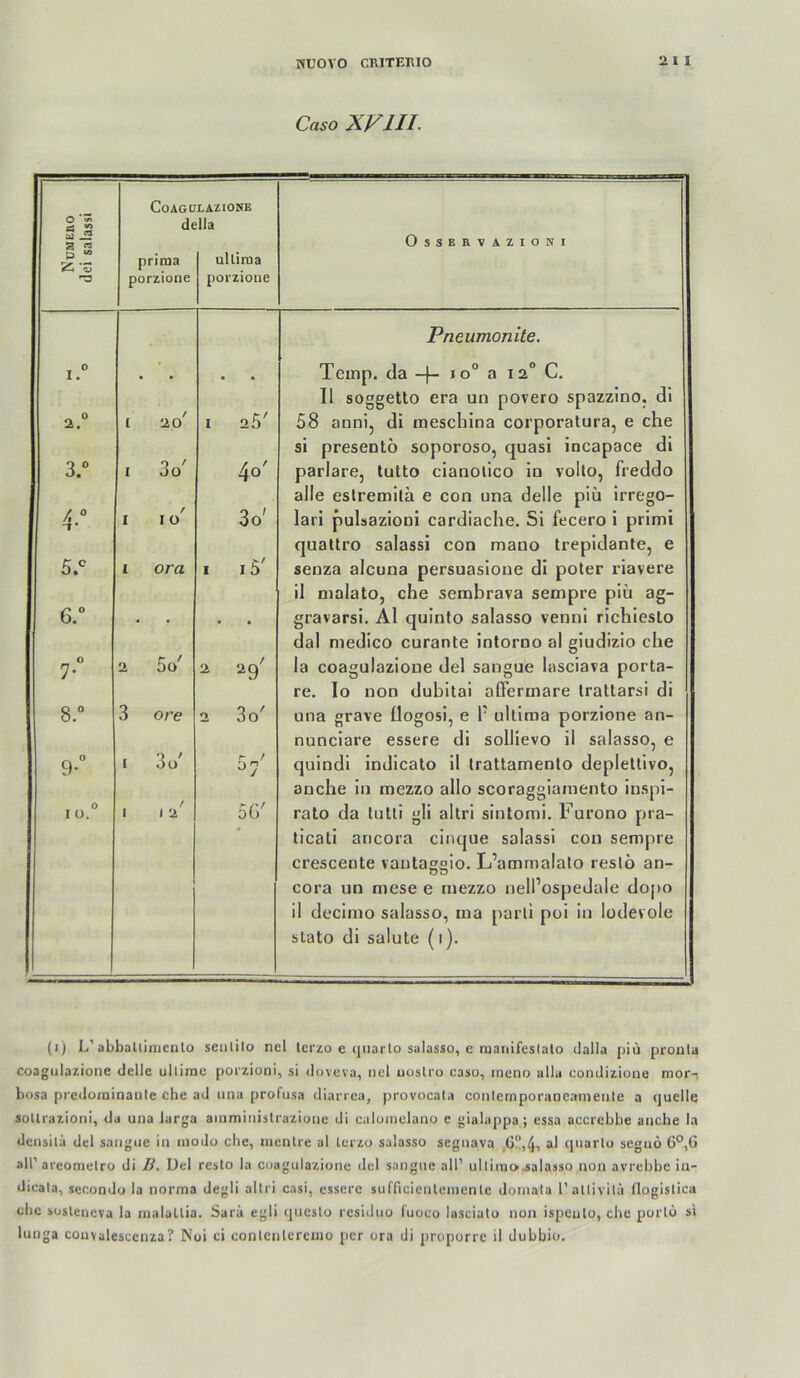 NUOVO CRITERIO 211
Caso XVIII.
Numero dei salassi
Coagulazione
della
prima porzione
ultima porzione
Osservazioni
1.° . . . .
2.° 1 20′ 1 25′
3.° 1 30′ 40′
4.° 1 10′ 30′
5.° 1 ora 1 15′
6.° . . . .
7.° 2 50′ 2 29′
8.° 3 ore 2 30′
9.° 1 30′ 57′
10.° 1 12′ 56′
Pneumonite.
Temp. da + 10° a 12° C.
Il soggetto era un povero spazzino, di
58 anni, di meschina corporatura, e che
si presentò soporoso, quasi incapace di
parlare, tutto cianotico in volto, freddo
alle estremità e con una delle più irrego-
lari pulsazioni cardiache. Si fecero i primi
quattro salassi con mano trepidante, e
senza alcuna persuasione di poter riavere
il malato, che sembrava sempre più ag-
gravarsi. Al quinto salasso venni richiesto
dal medico curante intorno al giudizio che
la coagulazione del sangue lasciava porta-
re. Io non dubitai affermare trattarsi di
una grave flogosi, e l' ultima porzione an-
nunciare essere di sollievo il salasso, e
quindi indicato il trattamento deplettivo,
anche in mezzo allo scoraggiamento inspi-
rato da tutti gli altri sintomi. Furono pra-
ticati ancora cinque salassi con sempre
crescente vantaggio. L'ammalato restò an-
cora un mese e mezzo nell'ospedale dopo
il decimo salasso, ma partì poi in lodevole
stato di salute (1).
(1) L' abbattimento sentito nel terzo e quarto salasso, e manifestato dalla più pronta
coagulazione delle ultime porzioni, si doveva, nel nostro caso, meno alla condizione mor-
bosa predominante che ad una profusa diarrea, provocata contemporaneamente a quelle
sottrazioni, da una larga amministrazione di calomelano e gialappa; essa accrebbe anche la
densità del sangue in modo che, mentre al terzo salasso segnava 6°,4, al quarto segnò 6°,6
all' areometro di B. Del resto la coagulazione del sangue all' ultimo salasso non avrebbe in-
dicata, secondo la norma degli altri casi, essere sufficientemente domata l' attività flogistica
che sosteneva la malattia. Sarà egli questo residuo fuoco lasciato non ispento, che portò sì
lunga convalescenza? Noi ci contenteremo per ora di proporre il dubbio.